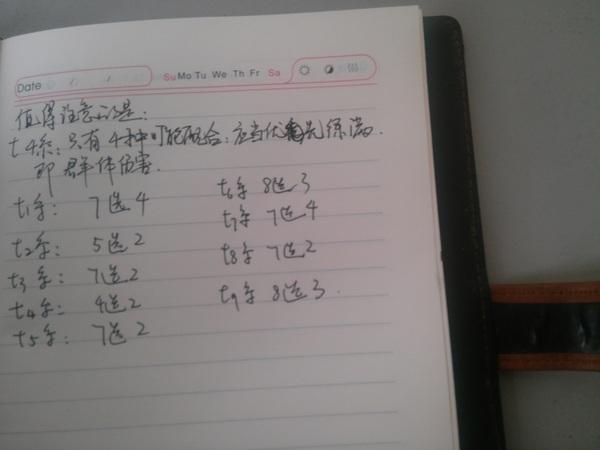 Date Su Mo Tu We Th Fr Sa
值得注意的是:
t4系: 只有4种可能配合: 应当优先练满.
即群体伤害.
t1系: 7选4
t2系: 5选2
t3系: 7选2
t4系: 4选2
t5系: 7选2
t6系 8选3
t7系 7选4
t8系 7选2
t9系 8选3.